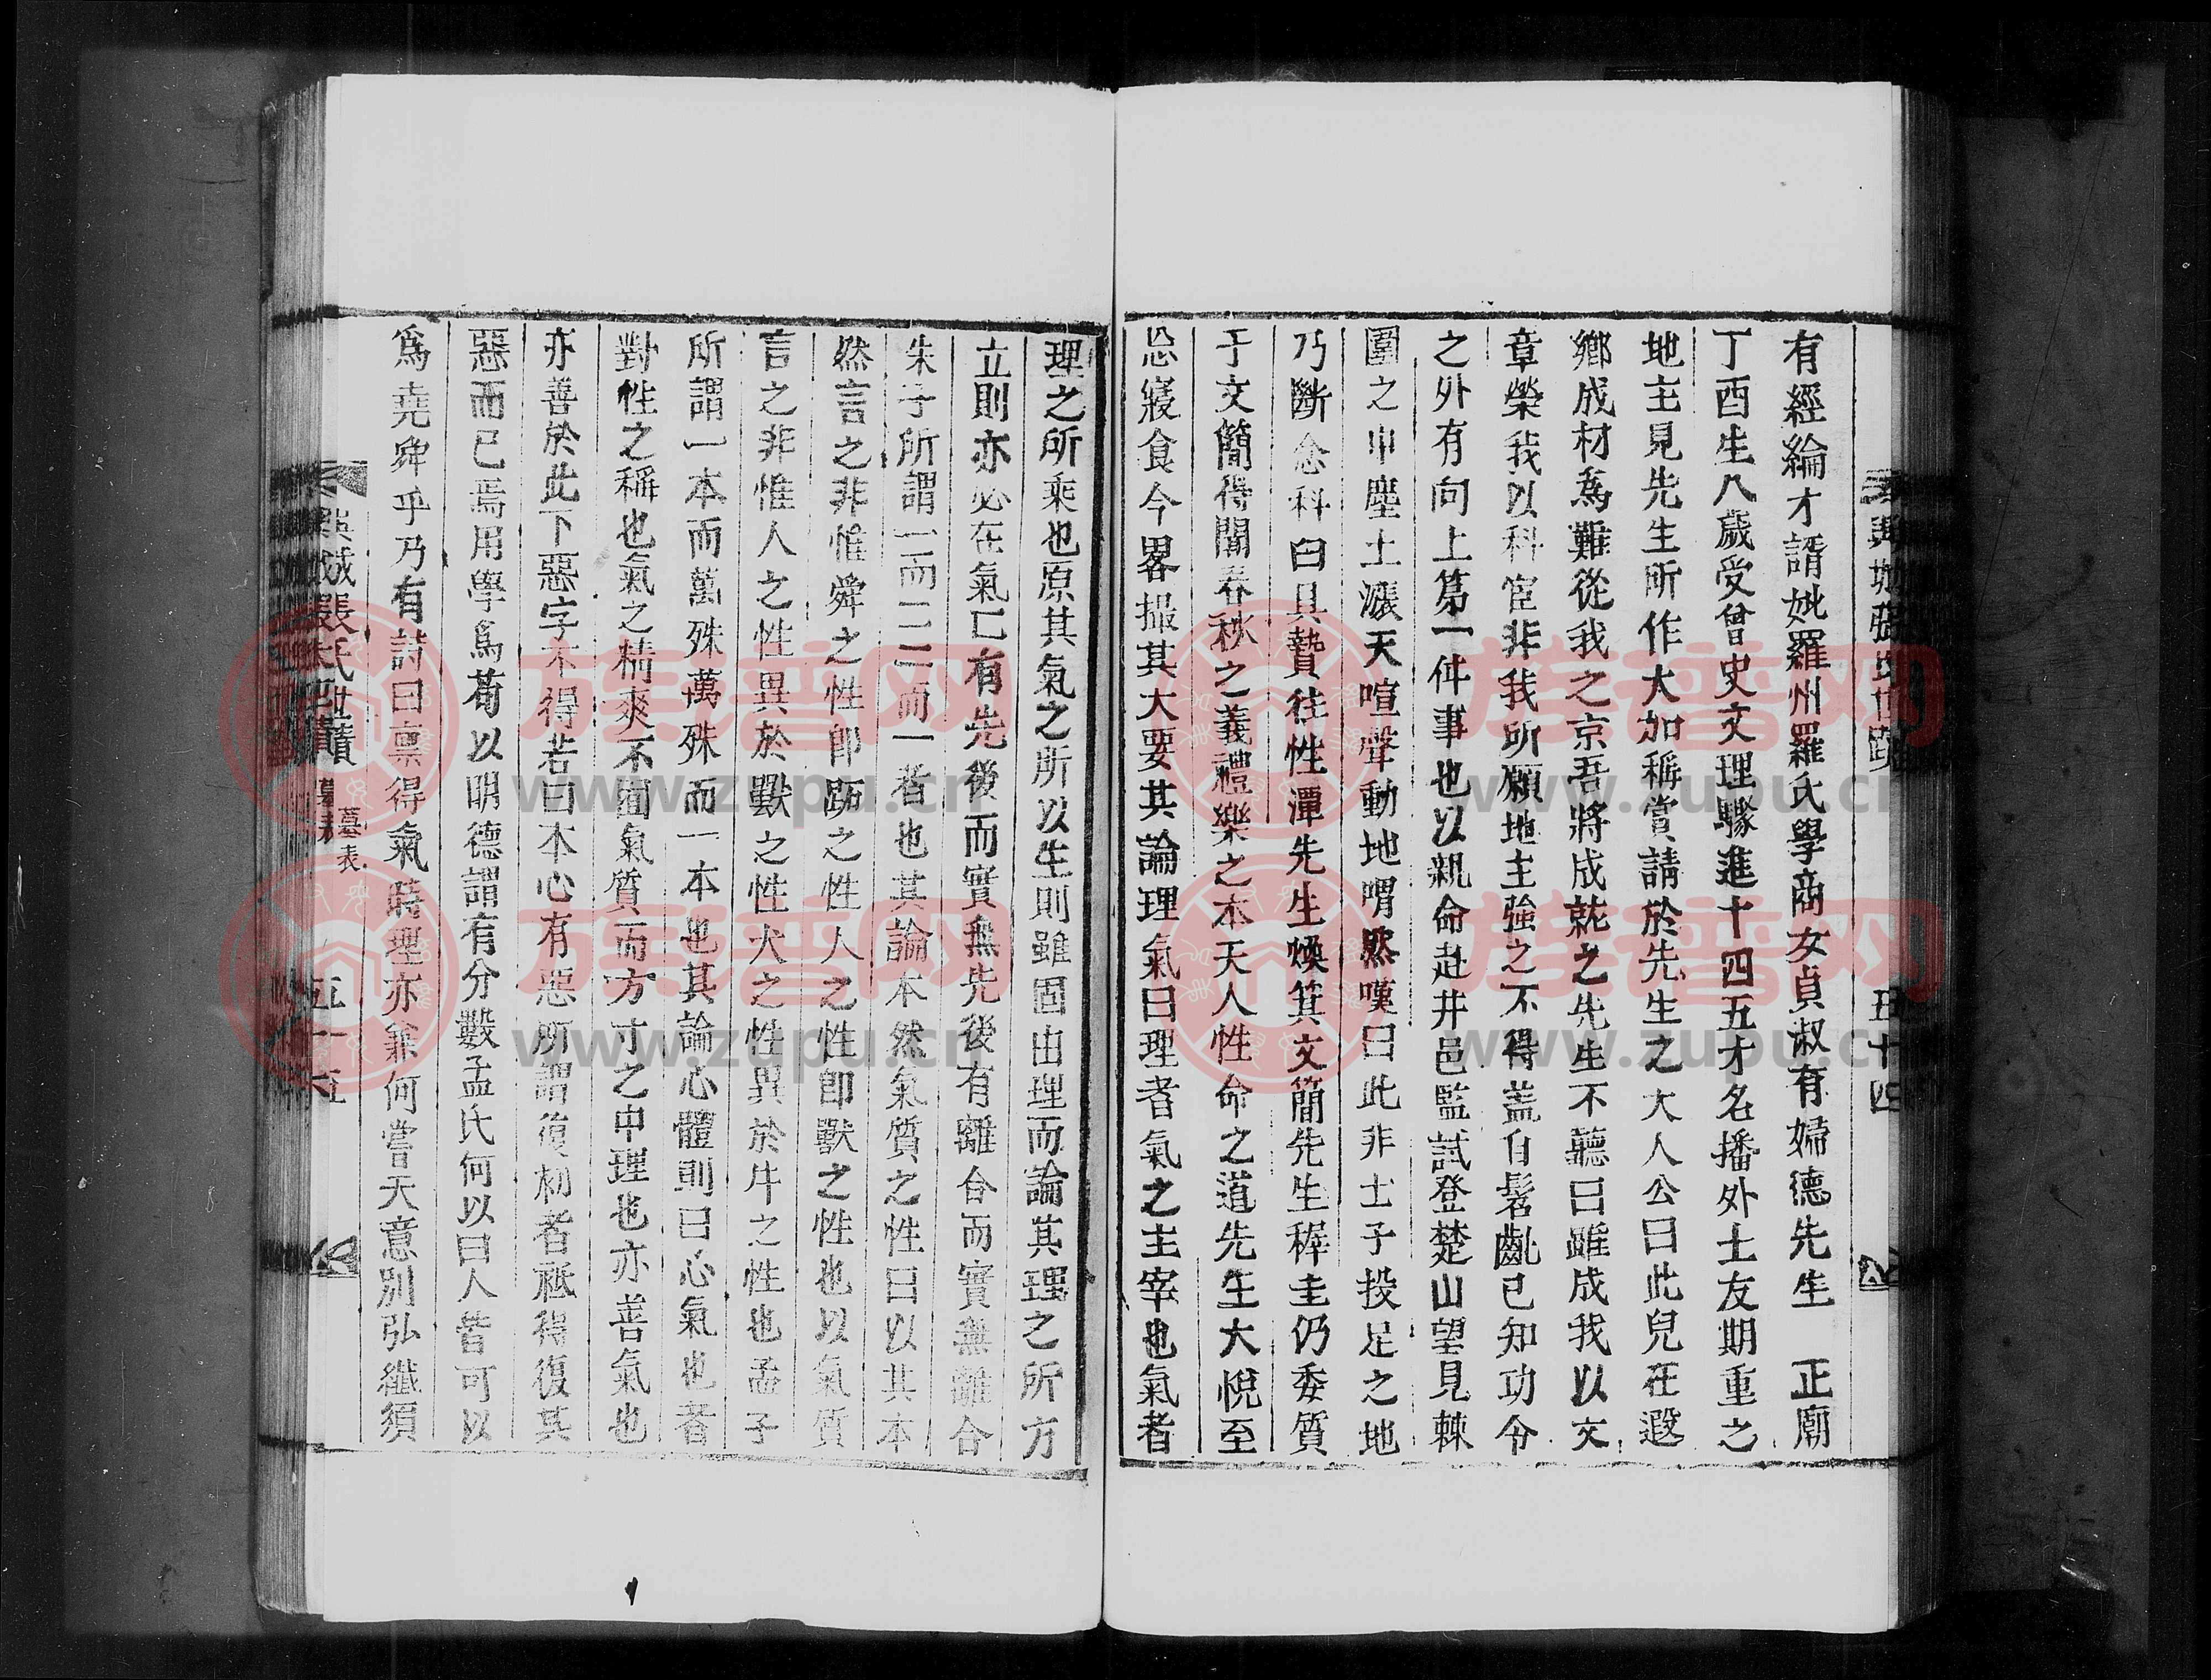 有經綸才諝妣羅州羅氏學商女貞淑有婦德先生 正廟
丁酉生八歲受曾史文理驟進十四五才名播外士友期重之
地主見先生所作大加稱賞請於先生之大人公曰此兒在遐
鄉成材爲難從我之京吾將成就之先生不聽曰雖成我以文
章榮我以科宦非我所願地主強之不得盖自髫齔已知功令
之外有向上第一件事也以親命赴井邑監試登楚山望見棘
圍之中塵土漲天喧聲動地喟然嘆曰此非士子投足之地
乃斷念科臼具贄往性潭先生煥箕文簡先生穉圭仍委質
于文簡得聞春秋之義禮樂之本天人性命之道先生大悅至
忘寢食今畧撮其大要其論理氣曰理者氣之主宰也氣者
五十四
理之所乘也原其氣之所以生則雖固由理而論其理之所方
立則亦必在氣已有先後而實無先後有離合而實無離合
朱子所謂一而二二而一者也其論本然氣質之性曰以其本
然言之非惟舜之性卽跖之性人之性卽獸之性也以氣質
言之非惟人之性異於獸之性犬之性異於牛之性也孟子
所謂一本而萬殊萬殊而一本也其論心體則曰心氣也者
對性之稱也氣之精爽不囿氣質而方寸之中理也亦善氣也
亦善於此下惡字不得若曰本心有惡所謂復初者祗得復其
惡而已焉用學爲荀以明德謂有分數孟氏何以曰人皆可以
爲堯舜乎乃有詩曰稟得氣時理亦兼何嘗天意別弘纖須
張氏世蹟 墓表
五十五
族譜网
www.zupu.cn
族譜网
www.zupu.cn
族譜网
www.zupu.cn
族譜网
www.zupu.cn